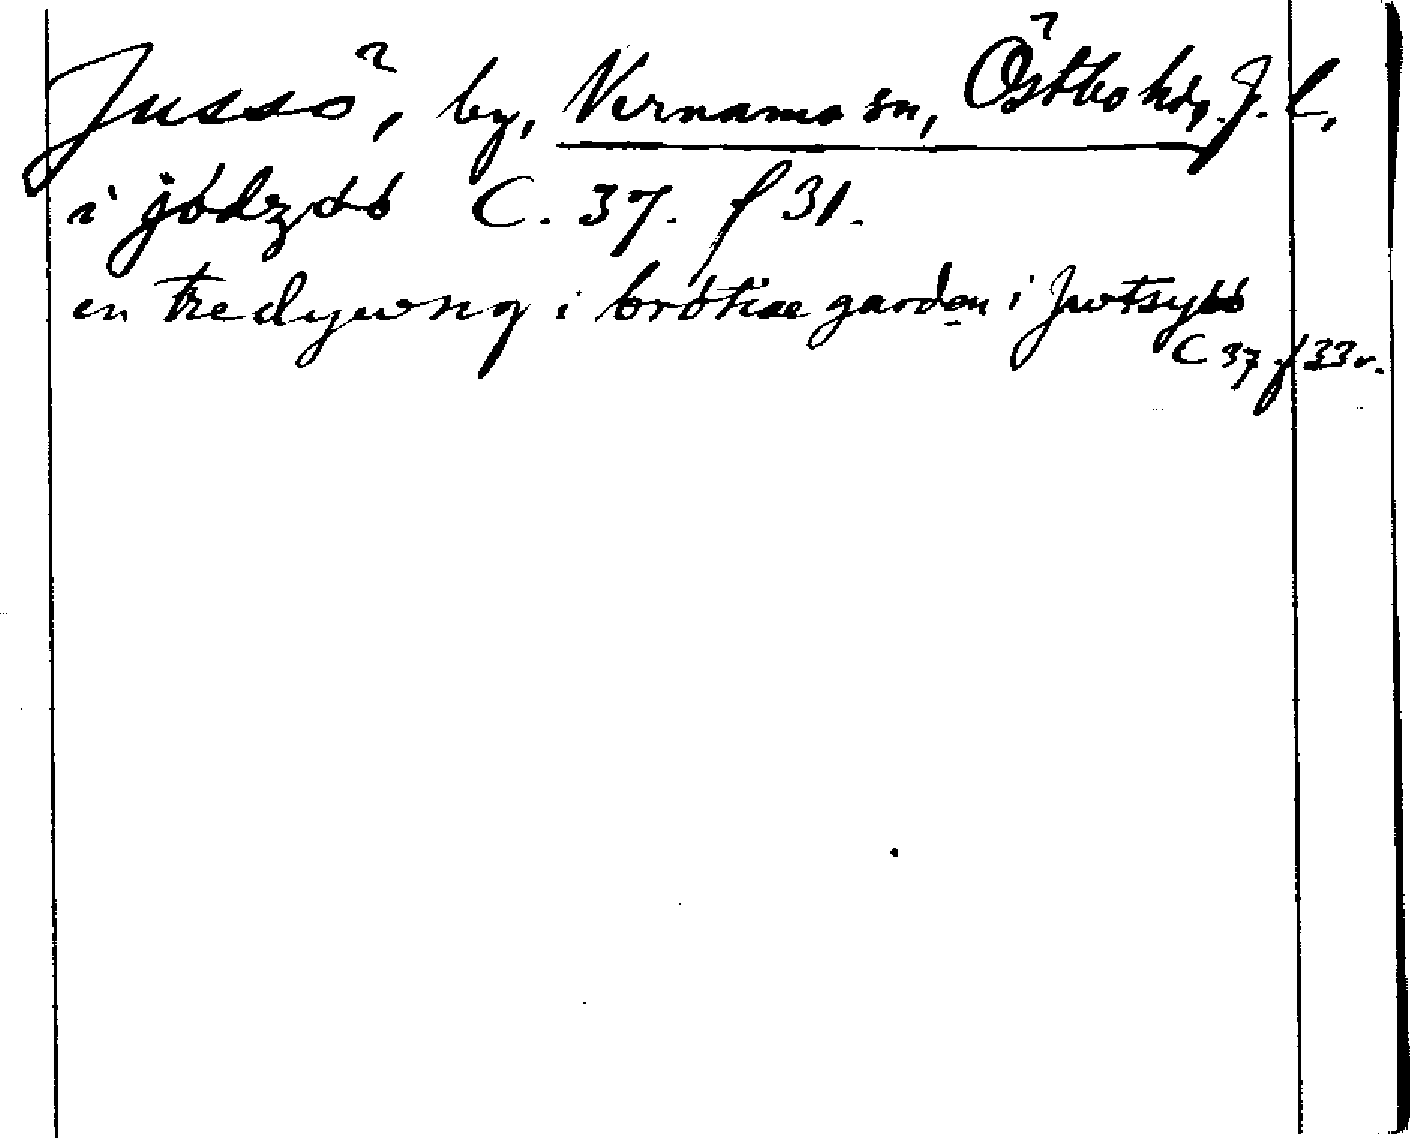 Jussö, by, Vernamo sn, Östbo hd, J. l.
i jödzøö C. 37. f 31.
en tredywng i brötiæ garden i Jwtsyöö
C 37 f 33 r.